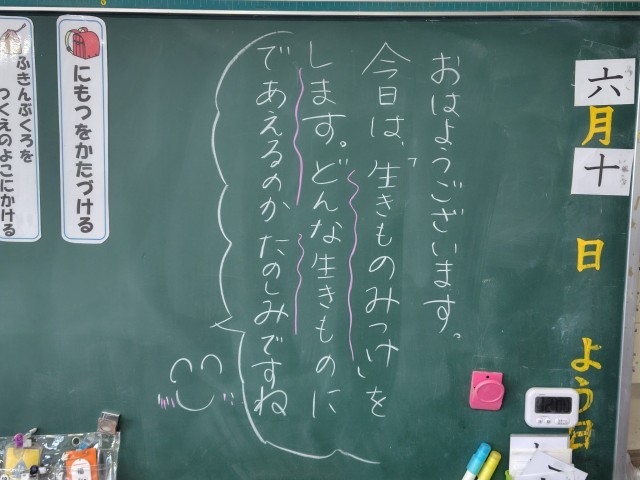 六月十日 よう日
おはようございます。
今日は、「生きものみつけ」を
します。どんな生きものに
であえるのか たのしみですね
にもつをかたづける
ふきんぶくろを
つくえのよこにかける